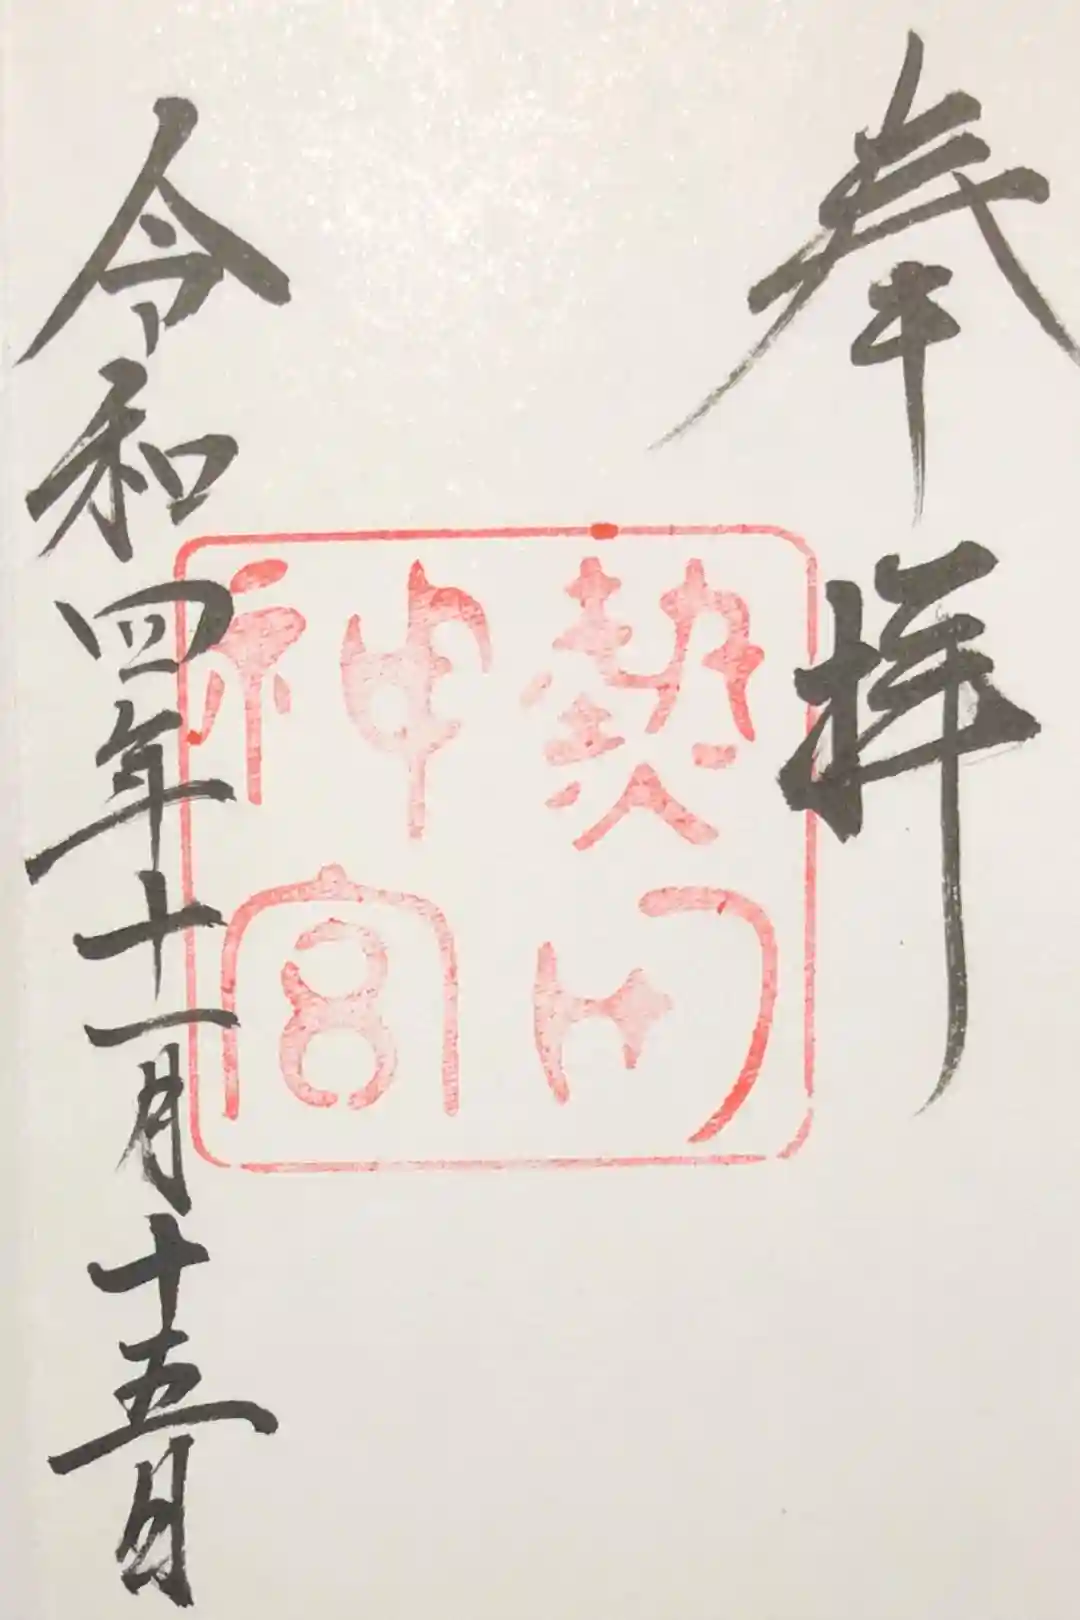 奉拝
熱田神宮
令和四年十一月十五日